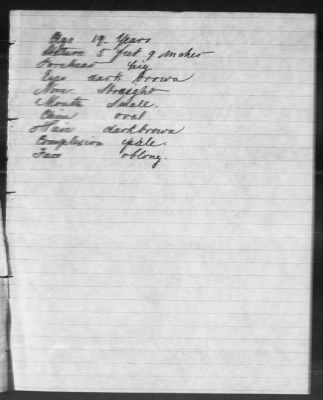 Age 19. Years
Stature 5 feet 9 inches
Forehead hig
Eyes dark brown
Nose Straight
Mouth Small.
Chin oval
Hair dark brown
Complexion pale
Face oblong.